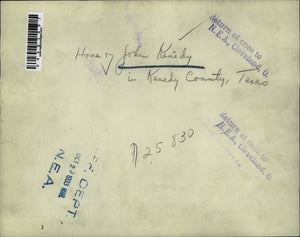 Return at once to
N.E.A., Cleveland, O.
Home of John Kenedy
in Kenedy County, Texas
Return at once to
N.E.A., Cleveland, O.
25830
DEPT.
N.E.A.